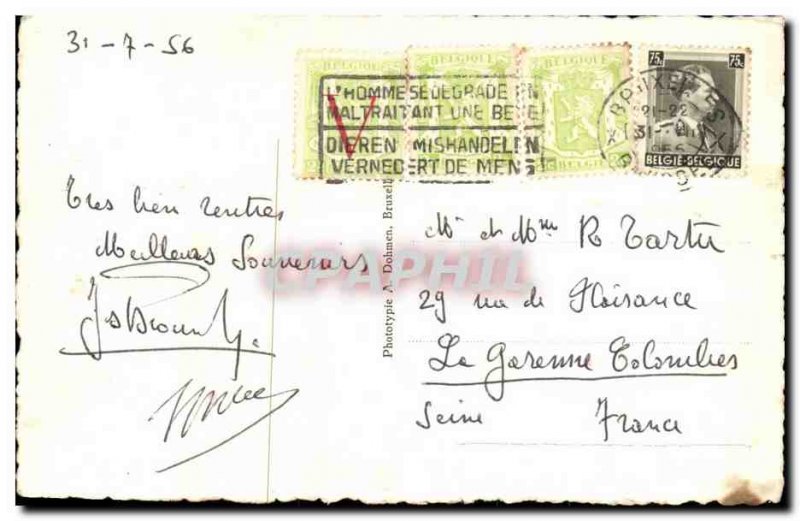 31-7-56
BELGIE
BELGIQUE
75c
75c
L'HOMME SE DEGRADE EN
MALTRAITANT UNE BETE
DIEREN MISHANDELEN
VERNEDERT DE MENS
BRUXELLES
21-22
31
BRUSSEL
BELGIË-BELGIQUE
Très bien rentrés
Meilleurs Souvenirs
Phototypie A. Dohmen, Bruxell
CPAPHIL
Mr et Mme R Tartu
29 rue de Plaisance
La Garenne Colombes
Seine France